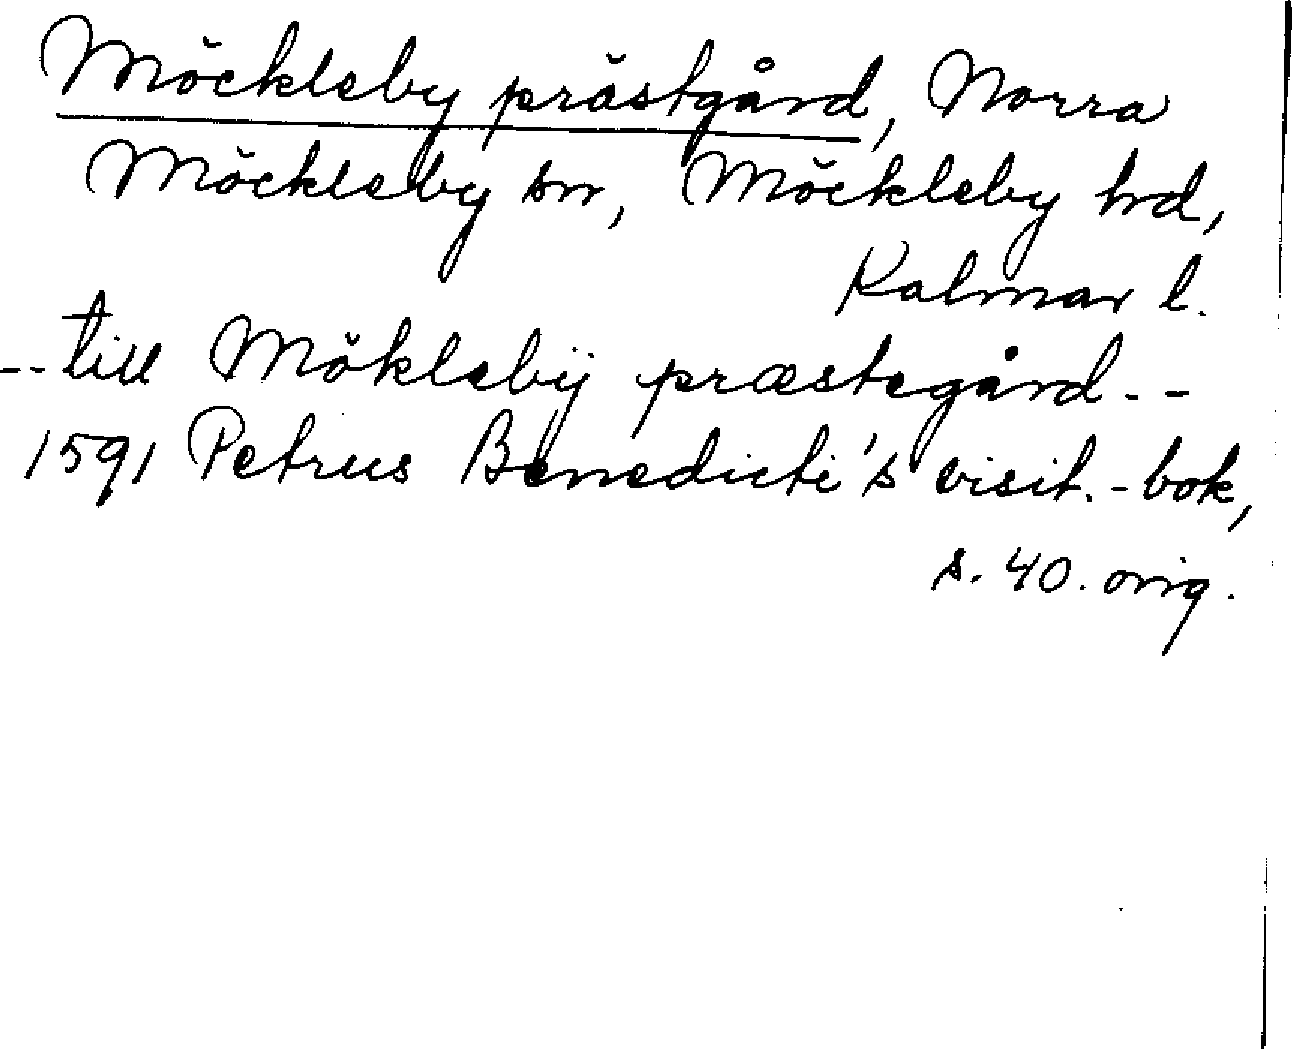 Möckleby prästgård, Norra
Möckleby sn, Möckleby hrd,
Kalmar l.
-- till Mökleby̎ præstegård --
1591 Petrus Benedicti's visit.-bok,
s. 40. orig.